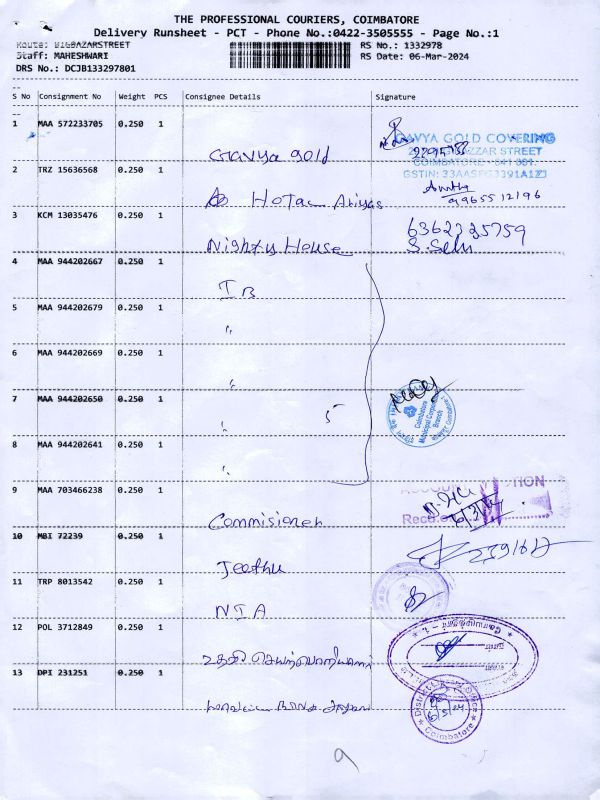 THE PROFESSIONAL COURIERS, COIMBATORE
Delivery Runsheet - PCT - Phone No.:0422-3505555 - Page No.:1
Route: BIGBAZARSTREET
RS No.: 1332978
Staff: MAHESHWARI
RS Date: 06-Mar-2024
DRS No.: DCJB133297801
S No Consignment No Weight PCS Consignee Details Signature
1 MAA 572233705 0.250 1
GAVYA GOLD COVERING
STREET
COIMBATORE - 641 001
Gavya gold
2 TRZ 15636568 0.250 1
9965512196
Hotal Ariyas
3 KCM 13035476 0.250 1
6362325759
Nighty House
4 MAA 944202667 0.250 1
IB
5 MAA 944202679 0.250 1
"
6 MAA 944202669 0.250 1
"
7 MAA 944202650 0.250 1
Coimbatore
Municipal Corporation
Branch
" 5
8 MAA 944202641 0.250 1
"
9 MAA 703466238 0.250 1
Commisioner
10 MBI 72239 0.250 1
Jeethu
11 TRP 8013542 0.250 1
NIA
12 POL 3712849 0.250 1
13 DPI 231251 0.250 1
Coimbatore
9